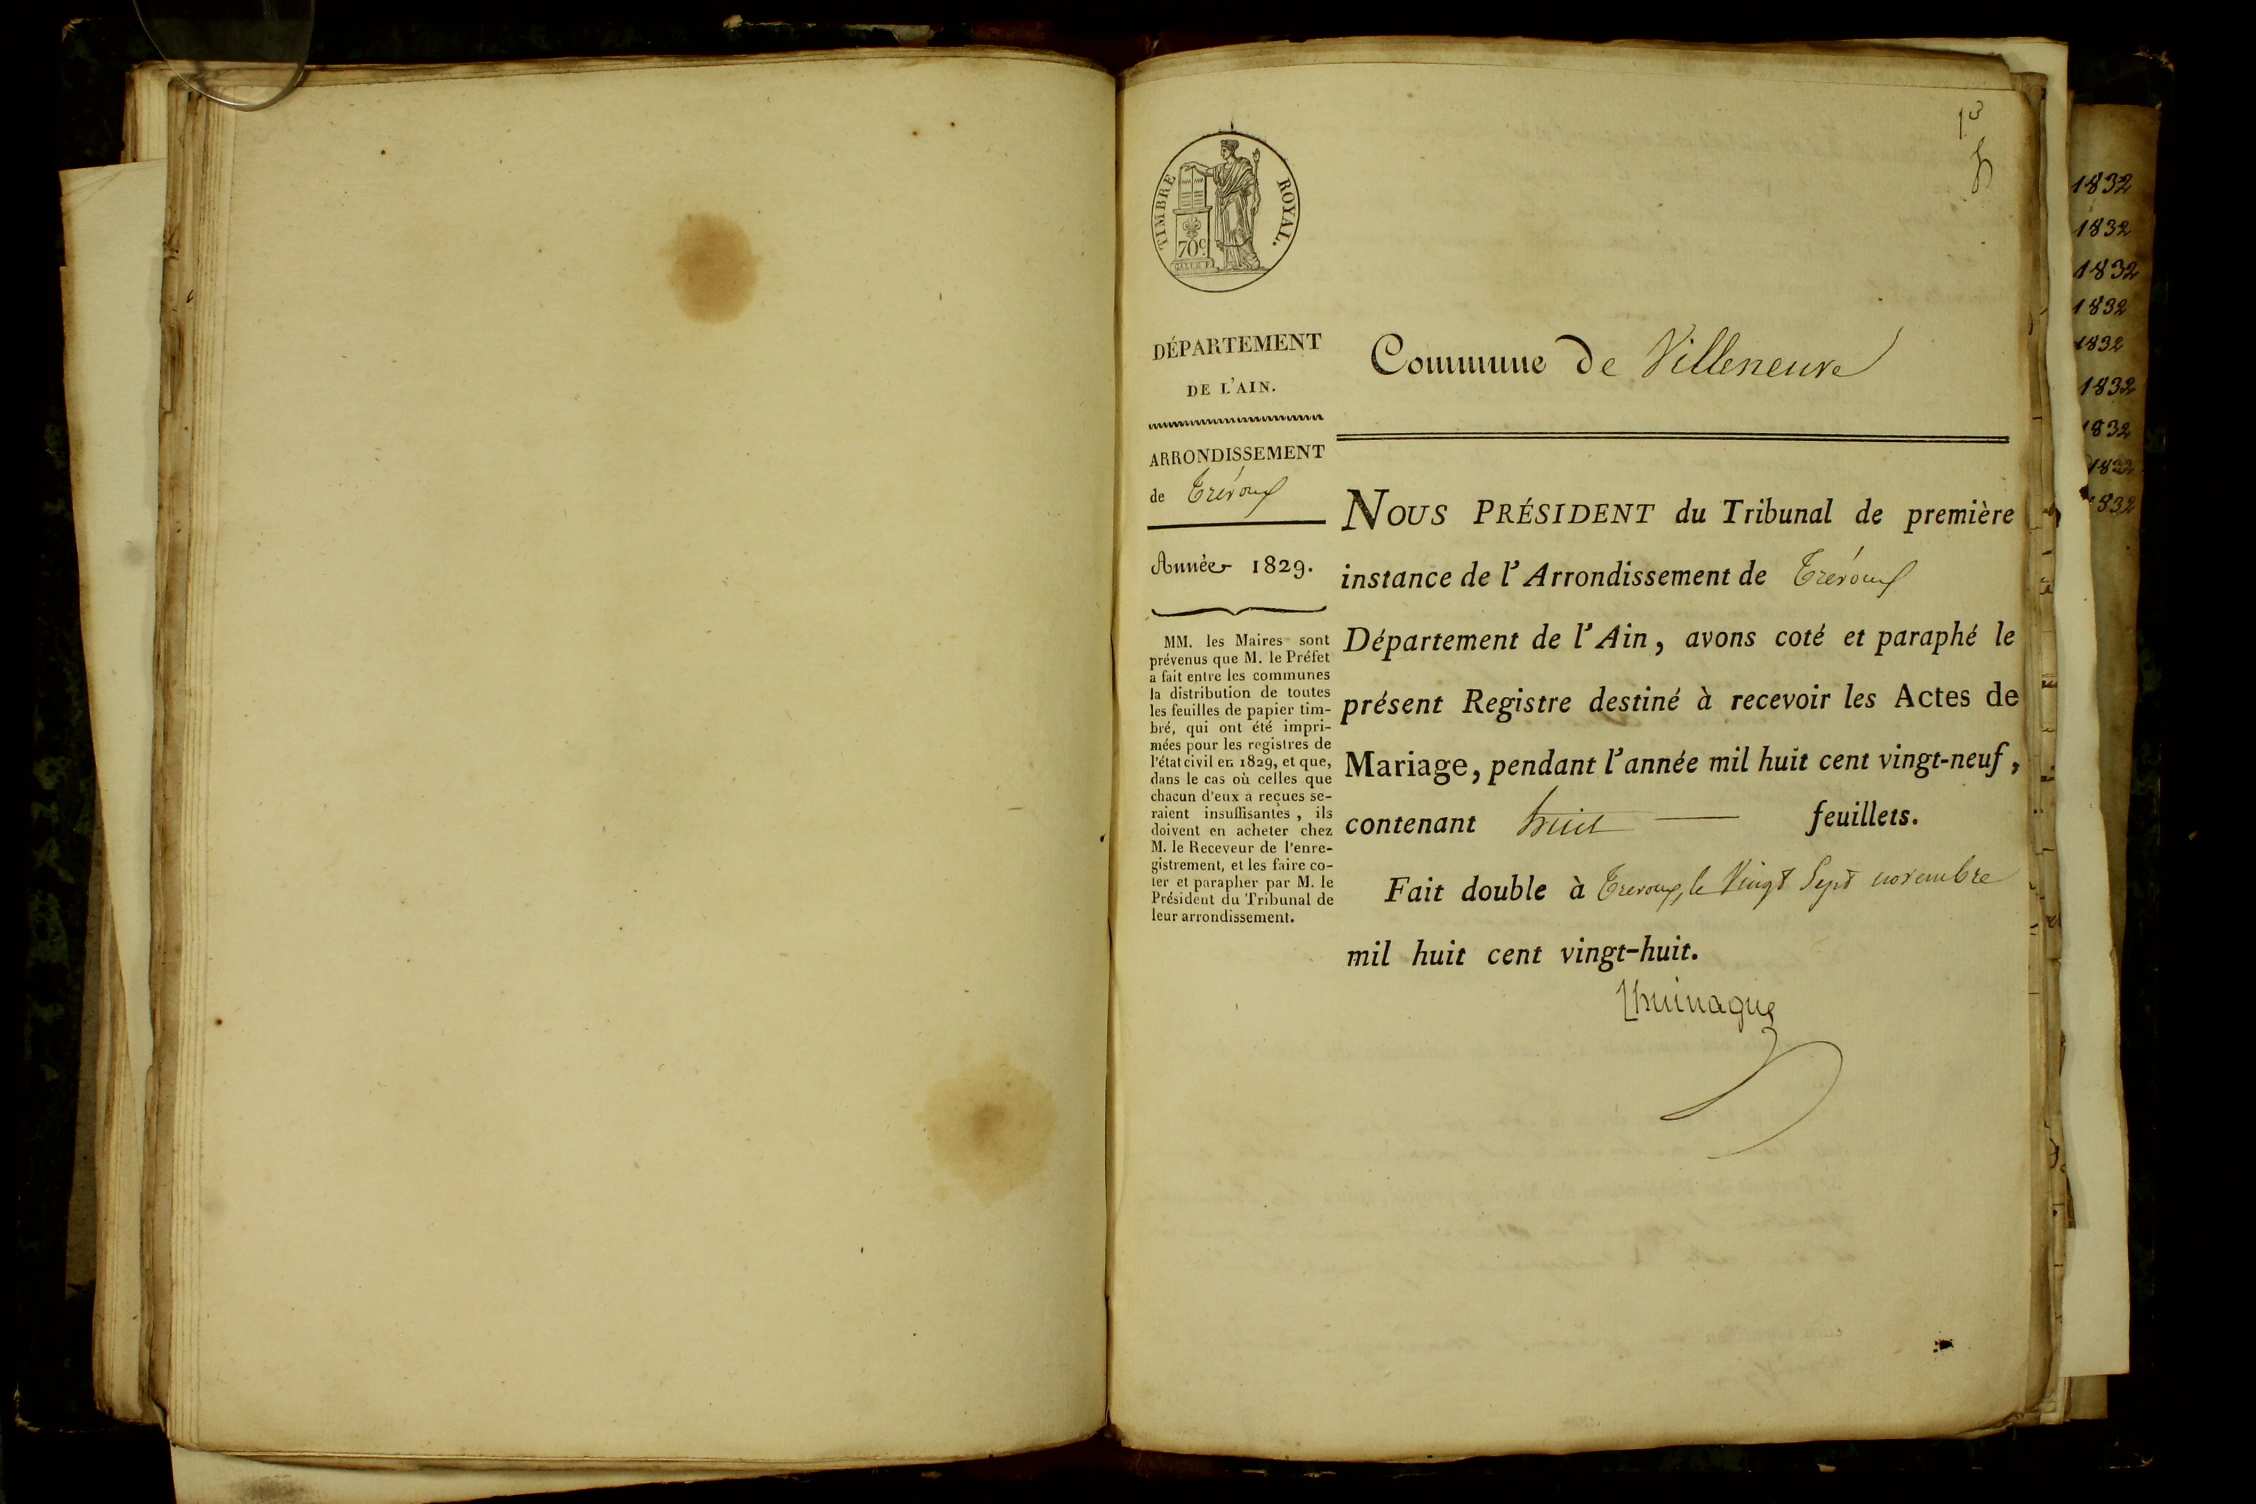 1832
1832
1832
1832
1832
1832
1832
1832
1832
TIMBRE ROYAL.
70ᶜ
DÉPARTEMENT
DE L'AIN.
ARRONDISSEMENT
de Trévoux
Année 1829.
MM. les Maires sont
prévenus que M. le Préfet
a fait entre les communes
la distribution de toutes
les feuilles de papier tim-
bré, qui ont été impri-
mées pour les registres de
l'état civil en 1829, et que,
dans le cas où celles que
chacun d'eux a reçues se-
raient insuffisantes, ils
doivent en acheter chez
M. le Receveur de l'enre-
gistrement, et les faire co-
ter et parapher par M. le
Président du Tribunal de
leur arrondissement.
Commune de Villeneuve
NOUS PRÉSIDENT du Tribunal de première
instance de l'Arrondissement de Trévoux
Département de l'Ain, avons coté et paraphé le
présent Registre destiné à recevoir les Actes de
Mariage, pendant l'année mil huit cent vingt-neuf,
contenant huit feuillets.
Fait double à Trevoux, le Vingt Sept novembre
mil huit cent vingt-huit.